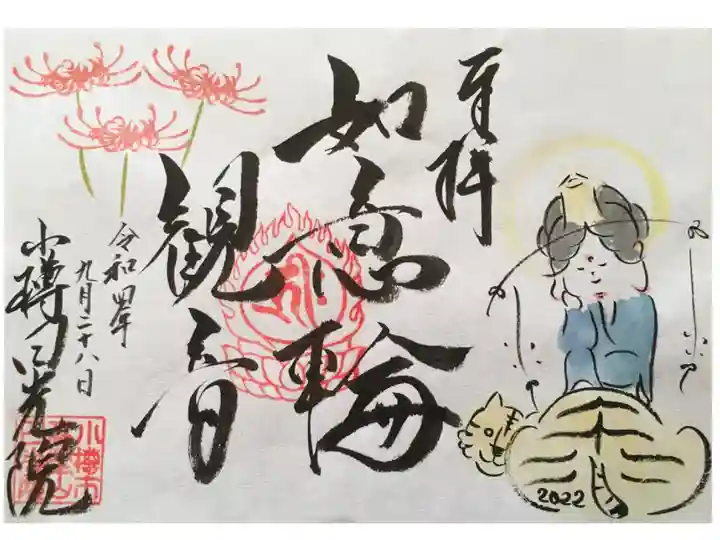 奉拝
如意輪
観音
令和四年
九月二十八日
小樽日光院
2022